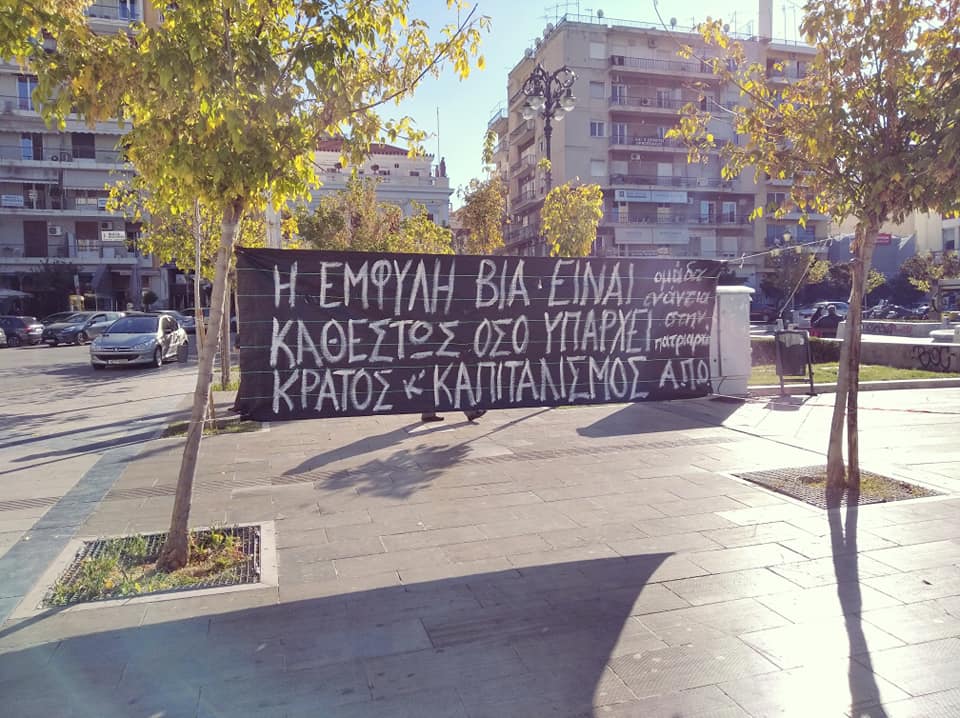 Η ΕΜΦΥΛΗ ΒΙΑ ΕΙΝΑΙ
ΚΑΘΕΣΤΩΣ ΟΣΟ ΥΠΑΡΧΕΙ
ΚΡΑΤΟΣ κ' ΚΑΠΙΤΑΛΙΣΜΟΣ
ομάδα
ενάντια
στην
πατριαρχία
Α.Π.Ο.